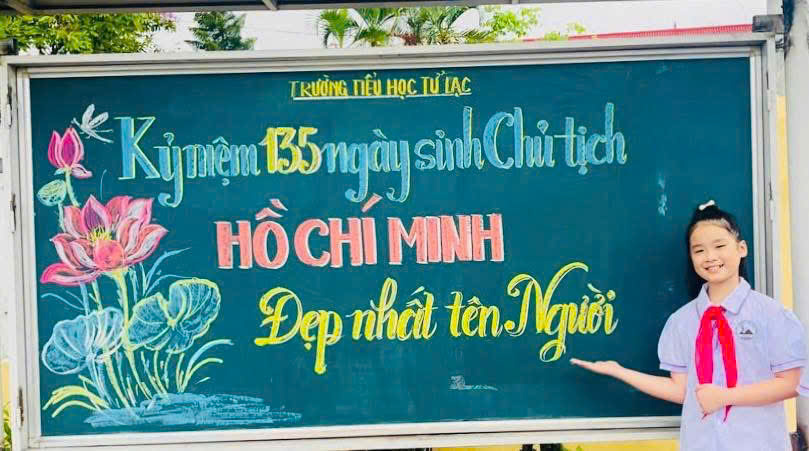 TRƯỜNG TIỂU HỌC TỬ LẠC
Kỷ niệm 135 ngày sinh Chủ tịch
HỒ CHÍ MINH
Đẹp nhất tên Người